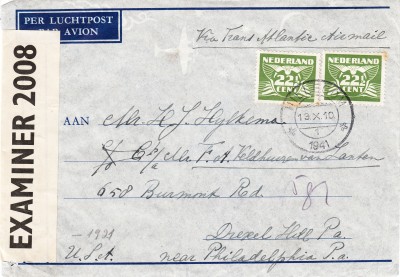 PER LUCHTPOST
PAR AVION
Via Trans Atlantic Airmail
EXAMINER 2008
NEDERLAND
22½
CENT
NEDERLAND
22½
CENT
13.X.10
1
1941
AAN
Mr. H. J. Hylkema
c/o Mr. F. A. Veldhuizen van Zanten
658 Burmont Rd.
Drexel Hill Pa
near Philadelphia P.a.
U.S.A
- 1941